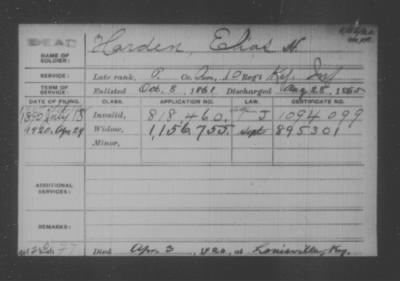 DEAD
NAME OF SOLDIER: Harden, Elias H.
SERVICE: Late rank, P. Co. 10 Reg't Ky. Inf
TERM OF SERVICE: Enlisted Oct. 8, 1861 Discharged Aug 28, 1865
DATE OF FILING. CLASS. APPLICATION NO. LAW. CERTIFICATE NO.
1890 July 15 Invalid, 818,460. J 1094099
1920, Apr 29 Widow, 1,156,755 Sept 895301
Minor,
ADDITIONAL SERVICES:
REMARKS:
Died Apr. 3, 1920, at Louisville, Ky.